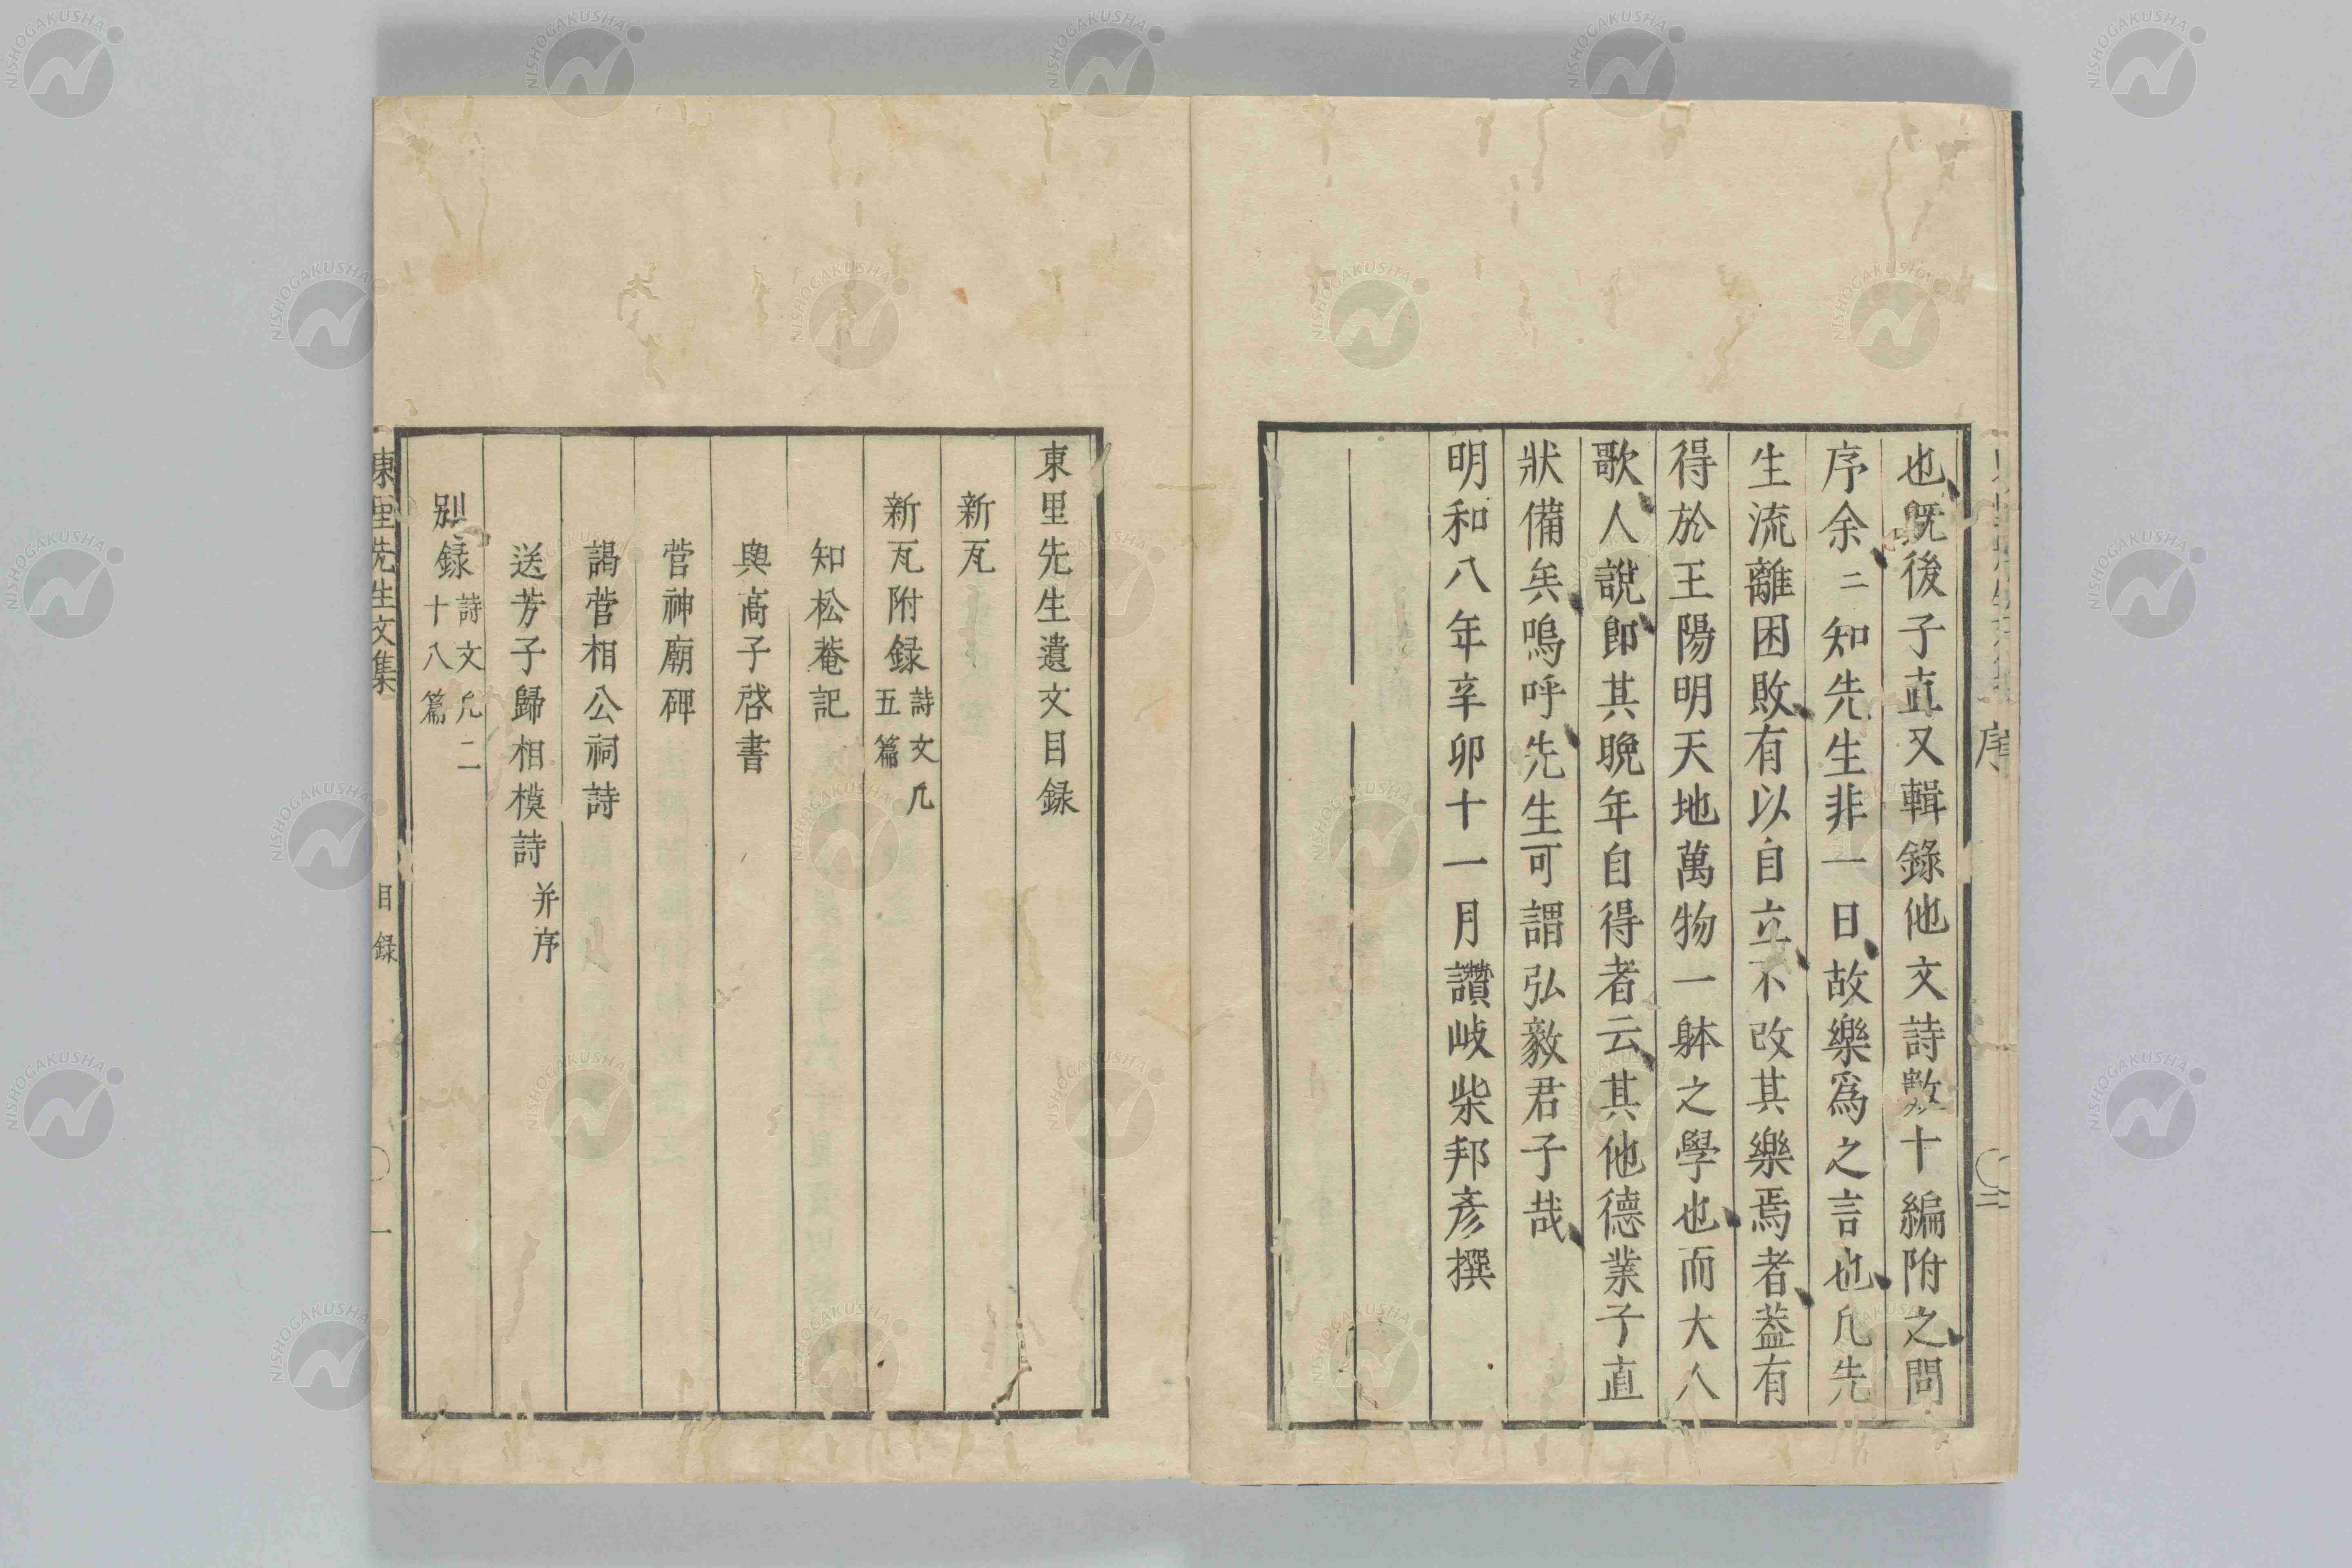 也既後子直又輯錄他文詩數十編附之問
序余二知先生非一日故樂爲之言也凡先
生流離困敗有以自立不改其樂焉者葢有
得於王陽明天地萬物一躰之學也而大人
歌人說卽其晩年自得者云其他德業子直
狀備矣嗚呼先生可謂弘毅君子哉
明和八年辛卯十一月讚岐柴邦彥撰
序
〇二
東里先生遺文目録
新瓦
新瓦附録 詩文凡五篇
知松菴記
與髙子啓書
菅神廟碑
謁菅相公祠詩
送芳子歸相模詩 并序
別録 詩文凡二十八篇
東里先生文集
目録
〇一
NISHOGAKUSHA